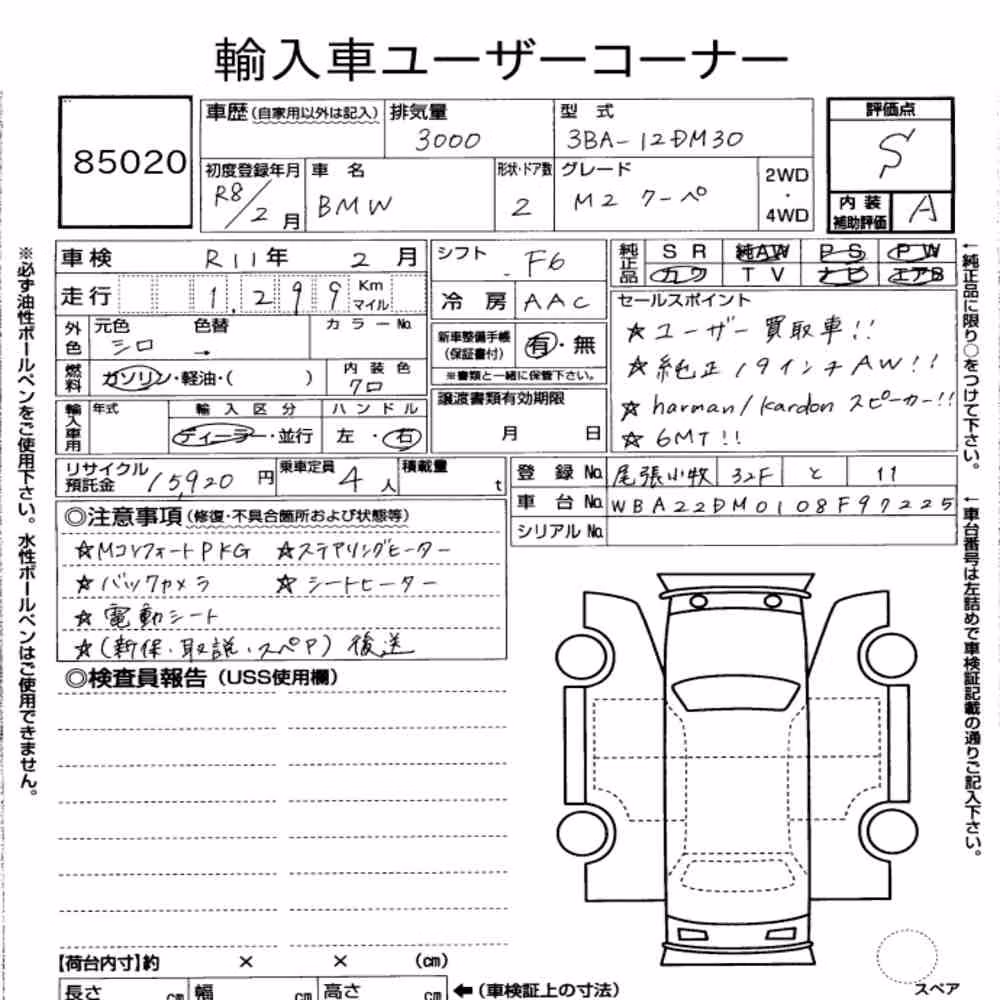 輸入車ユーザーコーナー
85020
車歴(自家用以外は記入) 排気量 3000 型式 3BA-12DM30
初度登録年月 R8/2月 車名 BMW 形状・ドア数 2 グレード M2 クーペ 2WD・4WD
評価点 S
内装補助評価 A
車検 R11年 2月
走行 1,299 Km マイル
外色 元色 シロ 色替 → カラーNo.
燃料 ガソリン・軽油・( ) 内装色 クロ
輸入車用 年式 輸入区分 ディーラー・並行 ハンドル 左・右
シフト F6
冷房 AAC
新車整備手帳(保証書付) 有・無
※書類と一緒に保管下さい。
譲渡書類有効期限
月 日
純正品 SR 純AW PS PW
カワ TV ナビ エアB
セールスポイント
☆ユーザー買取車!!
☆純正19インチAW!!
☆harman/kardon スピーカー!!
☆6MT!!
リサイクル預託金 15,920円 乗車定員 4人 積載量 t
登録No. 尾張小牧 32F と 11
車台No. WBA22DM0108F97225
シリアルNo.
◎注意事項(修復・不具合箇所および状態等)
☆MコンフォートPKG ☆ステアリングヒーター
☆バックカメラ ☆シートヒーター
☆電動シート
☆(新保・取説・スペア)後送
◎検査員報告(USS使用欄)
【荷台内寸】約 × × (cm)
長さ cm 幅 cm 高さ cm ←(車検証上の寸法)
スペア
※必ず油性ボールペンをご使用下さい。水性ボールペンはご使用できません。
←純正品に限り○をつけて下さい。
←車台番号は左詰めで車検証記載の通りご記入下さい。